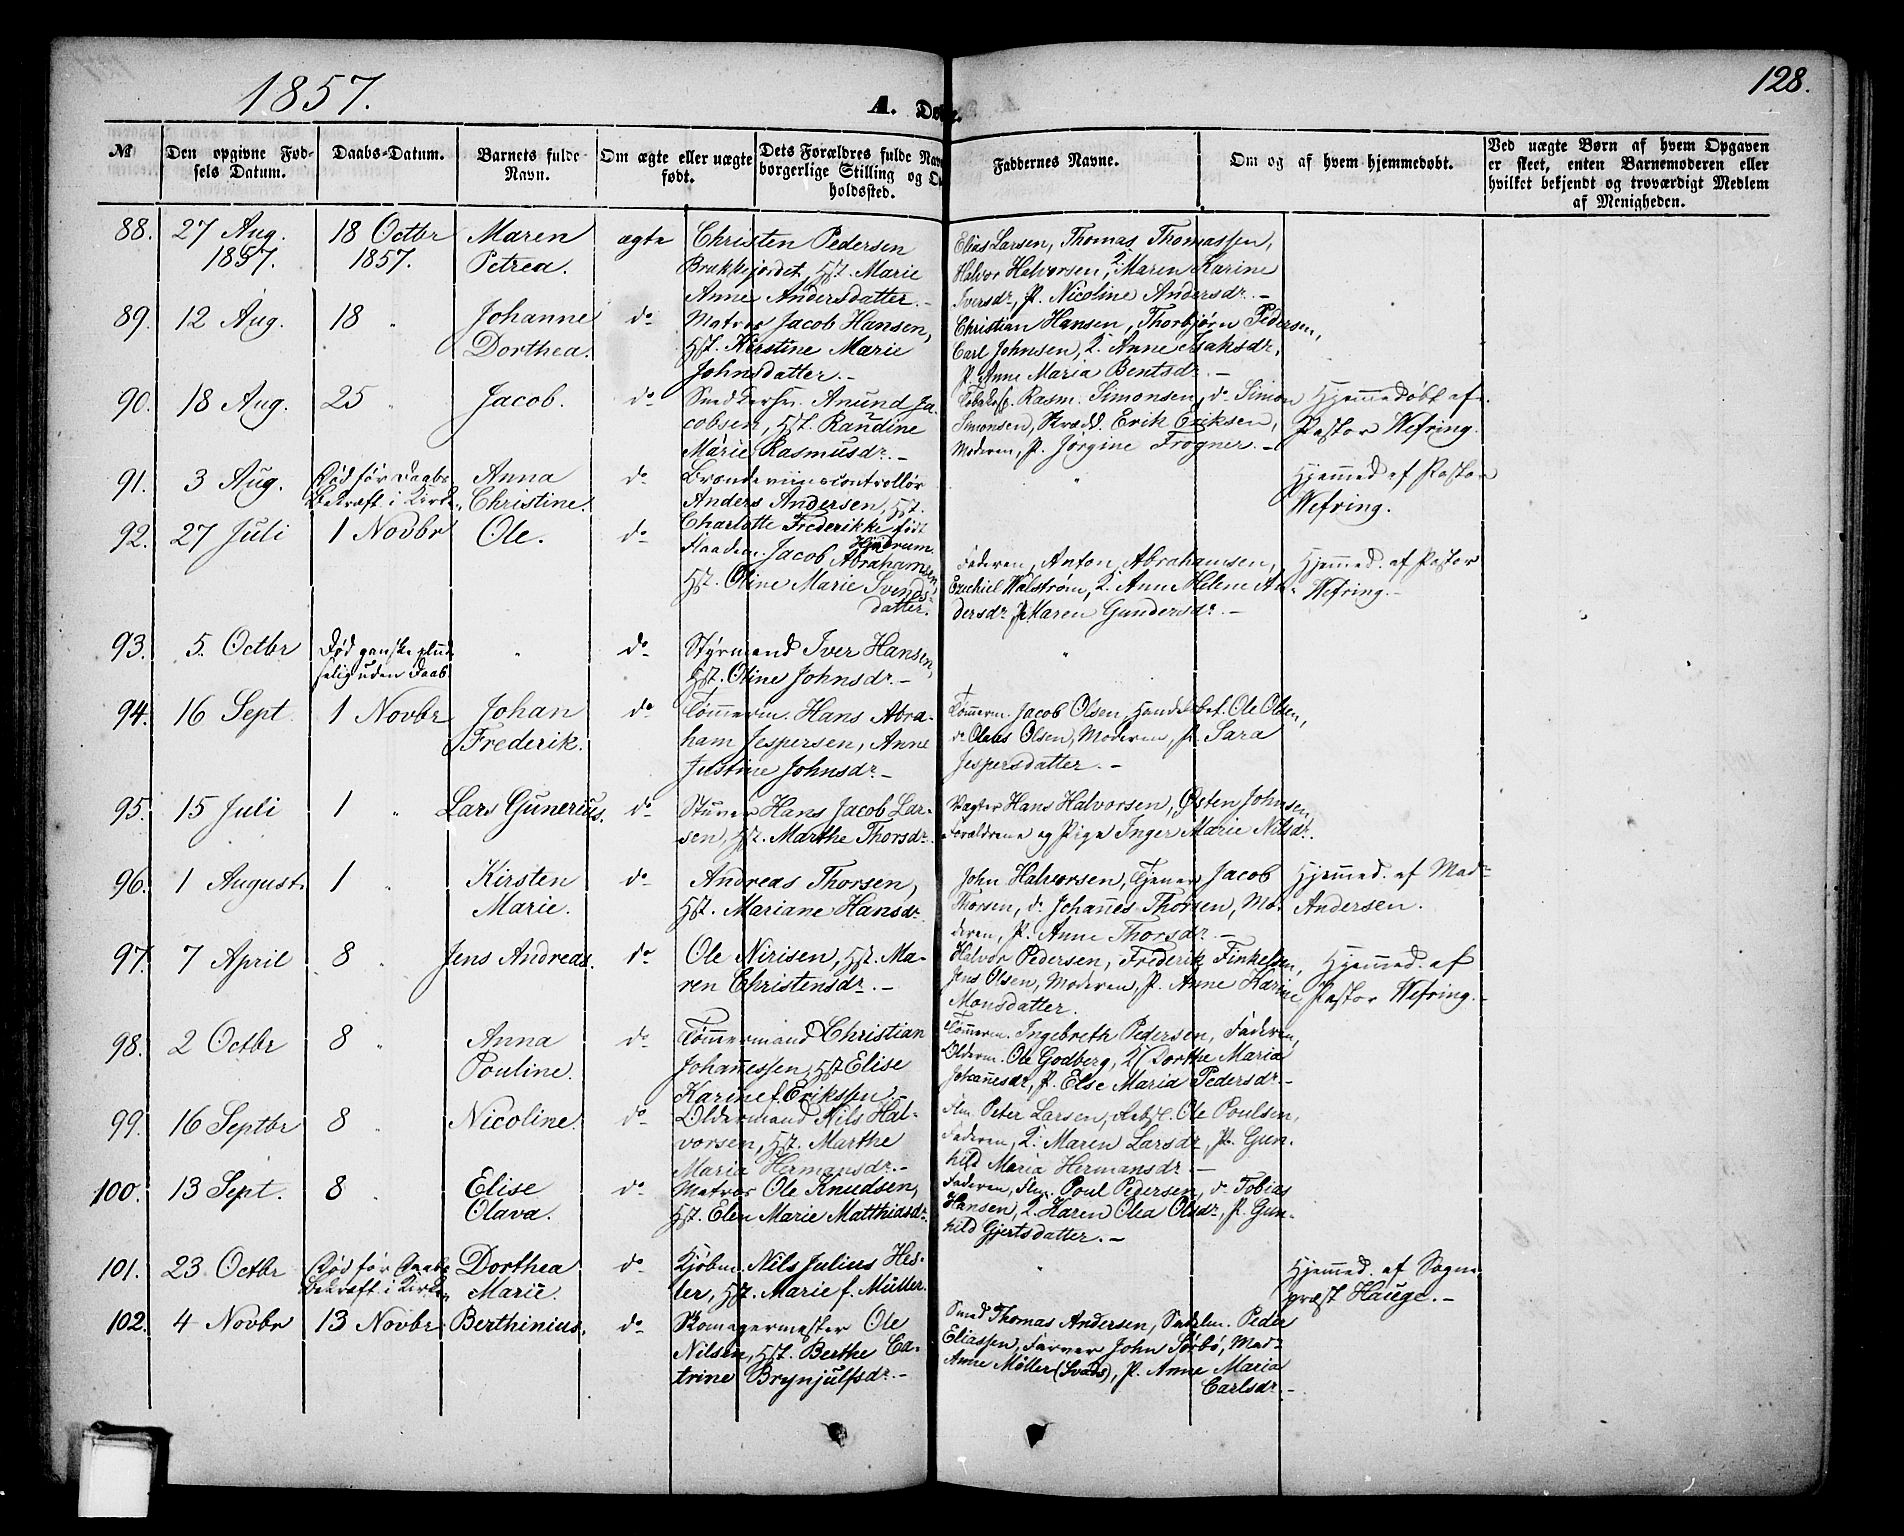 1857.
A. Døbte.
128.
№
Den opgivne Fødsels Datum.
Daabs-Datum.
Barnets fulde Navn.
Om ægte eller uægte født.
Dets Forældres fulde Navn
borgerlige Stilling og O
holdssted.
Faddernes Navne.
Om og af hvem hjemmedøbt.
Ved uægte Børn af hvem Opgaven
er skeet, enten Barnemoderen eller
hvilket bekjendt og troværdigt Medlem
af Menigheden.
88. 27 Aug. 1857. 18 Octbr 1857. Maren Petrea. ægte
Christen Pedersen
Brækkejordet, Hst. Marie
Anne Andersdatter.-
Elias Larsen, Thomas Thomassen,
Halvor Halvorsen, Q. Maren Karine
Iversdr, P. Nicoline Andersdr.-
89. 12 Aug. 18 " Johanne Dorthea. do
Matros Jacob Hansen,
Hst. Kirstine Marie
Johnsdatter.-
Christian Hansen, Thorbjørn Pedersen,
Carl Johnsen, Q. Anne Isaksdr,
P. Anne Maria Bentsdr.-
90. 18 Aug. 25 " Jacob. do
Smed Anund Ja-
cobsen, Hst. Randine
Marie Rasmusdr.-
Rasm. Simonsen, do Simon
Simonsen, Skrædd. Erik Eriksen,
Moderen, P. Jørgine Frogner.-
Hjemmedøbt af
Pastor Wefring.
91. 3 Aug. Død før Daabs
Bekræft. i Kirke. Anna Christine. do
Brændeviinscontrollør
Anders Andersen, Hst.
Charlotte Frederikke født
"
Hjemmed. af Pastor
Wefring.
92. 27 Juli 1 Novbr Ole. do
Jacob Abrahamsen,
Hst. Oline Marie Svends-
datter.
Faderen, Anton Abrahamsen,
Ezechiel Walstrøm, Q. Anne Helene An-
dersdr, P. Karen Gundersdr.-
Hjemmed. af Pastor
Wefring.-
93. 5. Octbr Død ganske plud-
selig uden Daab. " do
Styrmand Iver Hansen,
Hst. Oline Johnsdr.-
"
94. 16 Sept. 1 Novbr Johan Frederik. do
Tømmerm. Hans Abra-
ham Jespersen, Anne
Justine Johnsdr.-
Tømmerm. Jacob Olsen, Handelsbet. Ole Olsen,
do Olaus Olsen, Moderen, P. Sara
Jespersdatter.-
95. 15 Juli 1 " Lars Gunerius. do
Stuver Hans Jacob Lar-
sen, Hst. Marthe Thorsdr.
Vægter Hans Halvorsen, Østen Johnsen,
Forældrene og Pige Inger Marie Nilsdr.
96. 1 August. 1 " Kirsten Marie. do
Andreas Thorsen,
Hst. Mariane Hansdr.
John Halvorsen, Tjener Jacob
Thorsen, do Johannes Thorsen, Mo-
deren, P. Anne Thorsdr.-
Hjemmed. af Mad:
Andersen.
97. 7 April 8 " Jens Andreas. do
Ole Nirisen, Hst. Ma-
ren Christensdr.-
Halvor Pedersen, Frederik Finkelsen,
Jens Olsen, Moderen, P. Anne Karine
Monsdatter.
Hjemmed. af
Pastor Wefring.-
98. 2 Octbr 8 " Anna Pouline. do
Tømmermand Christian
Johannessen, Hst. Elise
Karine f. Erikssen.-
Tømmerm. Ingebreth Pedersen, Faderen,
Olderm. Ole Godberg, Q. Dorthe Maria
Johannesdr, P. Else Maria Pedersdr.-
99. 16 Septbr 8 " Nicoline. do
Oldermand Nils Hal-
vorsen, Hst. Marthe
Maria Hermansdr.-
Peter Larsen, Ole Poulsen,
Faderen, Q. Maren Larsdr, P. Gun-
hild Maria Hermansdr.-
100. 13 Sept. 8 " Elise Olava. do
Matros Ole Knudsen,
Hst. Elen Marie Matthiasdr.
Faderen, Poul Pedersen, do Tobias
Hansen, Q. Karen Olea Olsdr, P. Gun-
hild Gjertsdatter.-
101. 23 Octbr Død før Daabs
Bekræft. i Kirken Dorthea Marie. do
Kjøbm. Nils Julius Hes-
ler, Hst. Marie f. Müller.
"
Hjemmed. af Sogne-
præst Hauge.-
102. 4 Novbr 13 Novbr Berthinius. do
Skomagermester Ole
Nilsen, Hst. Berthe Ca-
trine Brynjulfsdr.-
Smed Thomas Andersen, Sadelm. Peder
Eliassen, Farver John Sørbø, Mad:
Anne Møller (Svads), P. Anne Maria
Carlsdr.-